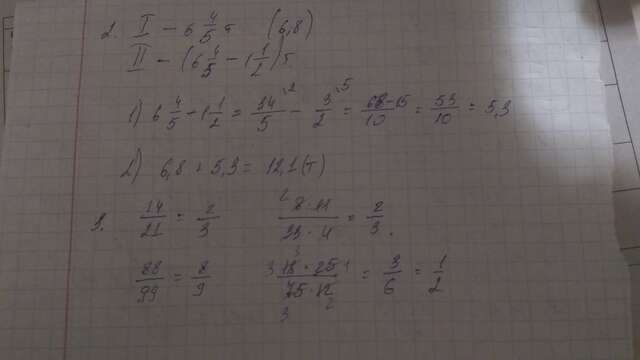 2. I – 6 4/5 т (6,8)
II – (6 4/5 – 1 1/2) т
1) 6 4/5 – 1 1/2 = 34/5 – 3/2 = 68–15/10 = 53/10 = 5,3
2) 6,8 + 5,3 = 12,1 (т)
3. 14/21 = 2/3 8·11/33·4 = 2/3.
88/99 = 8/9 18·25/75·12 = 3/6 = 1/2